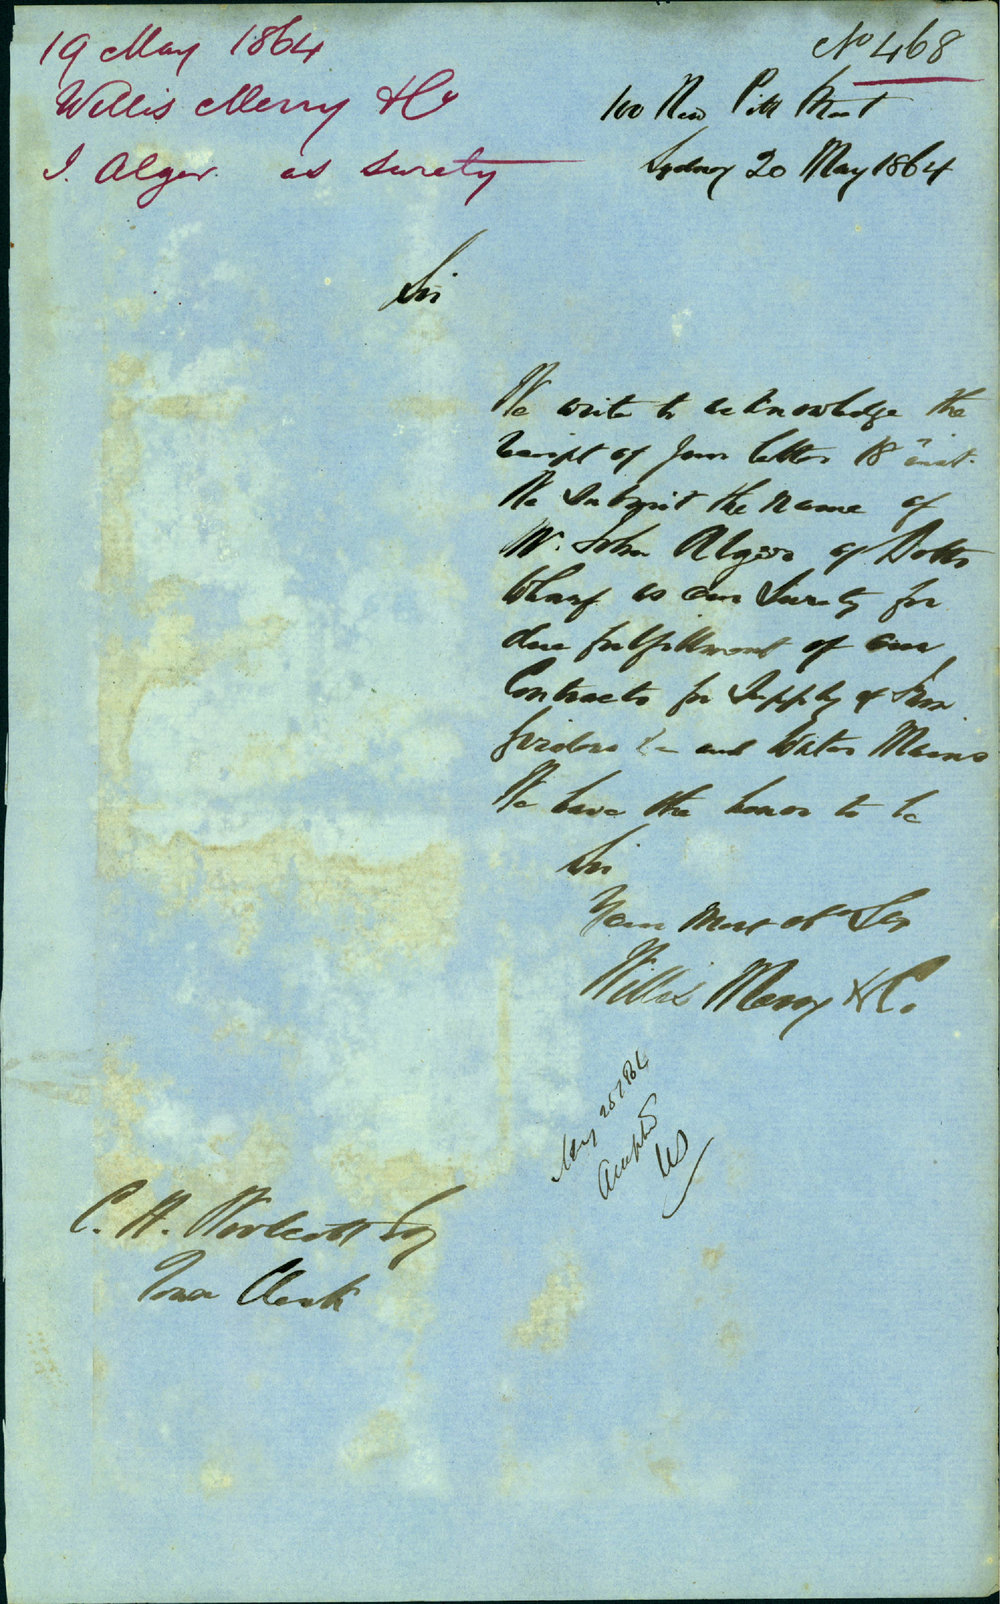 19 May 1864
Willis Merry & Co
J. Alger as surety
No 468
100 New Pitt Street
Sydney 20 May 1864
Sir
We write to acknowledge the
receipt of your letter 18th inst.
We submit the name of
Mr. John Alger of Botts
Wharf as our Surety for
due fulfillment of our
Contracts for Supply of Iron
girders &c and Water Mains
We have the honor to be
Sir
Your most obt Ser
Willis Merry & Co.
May 25/64
Accepted
C. H. Woolcott Esq
Town Clerk